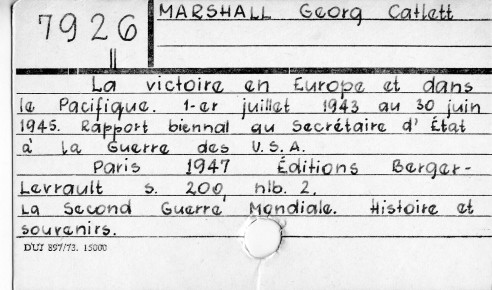 7926
MARSHALL Georg Catlett
La victoire en Europe et dans
le Pacifique. 1-er juillet 1943 au 30 juin
1945. Rapport biennal au Secrétaire d'État
à la Guerre des U.S.A.
Paris 1947 Éditions Berger-
Levrault s. 200, nlb. 2.
La Second Guerre Mondiale. Histoire et
souvenirs.
DUJ 897/73. 15000